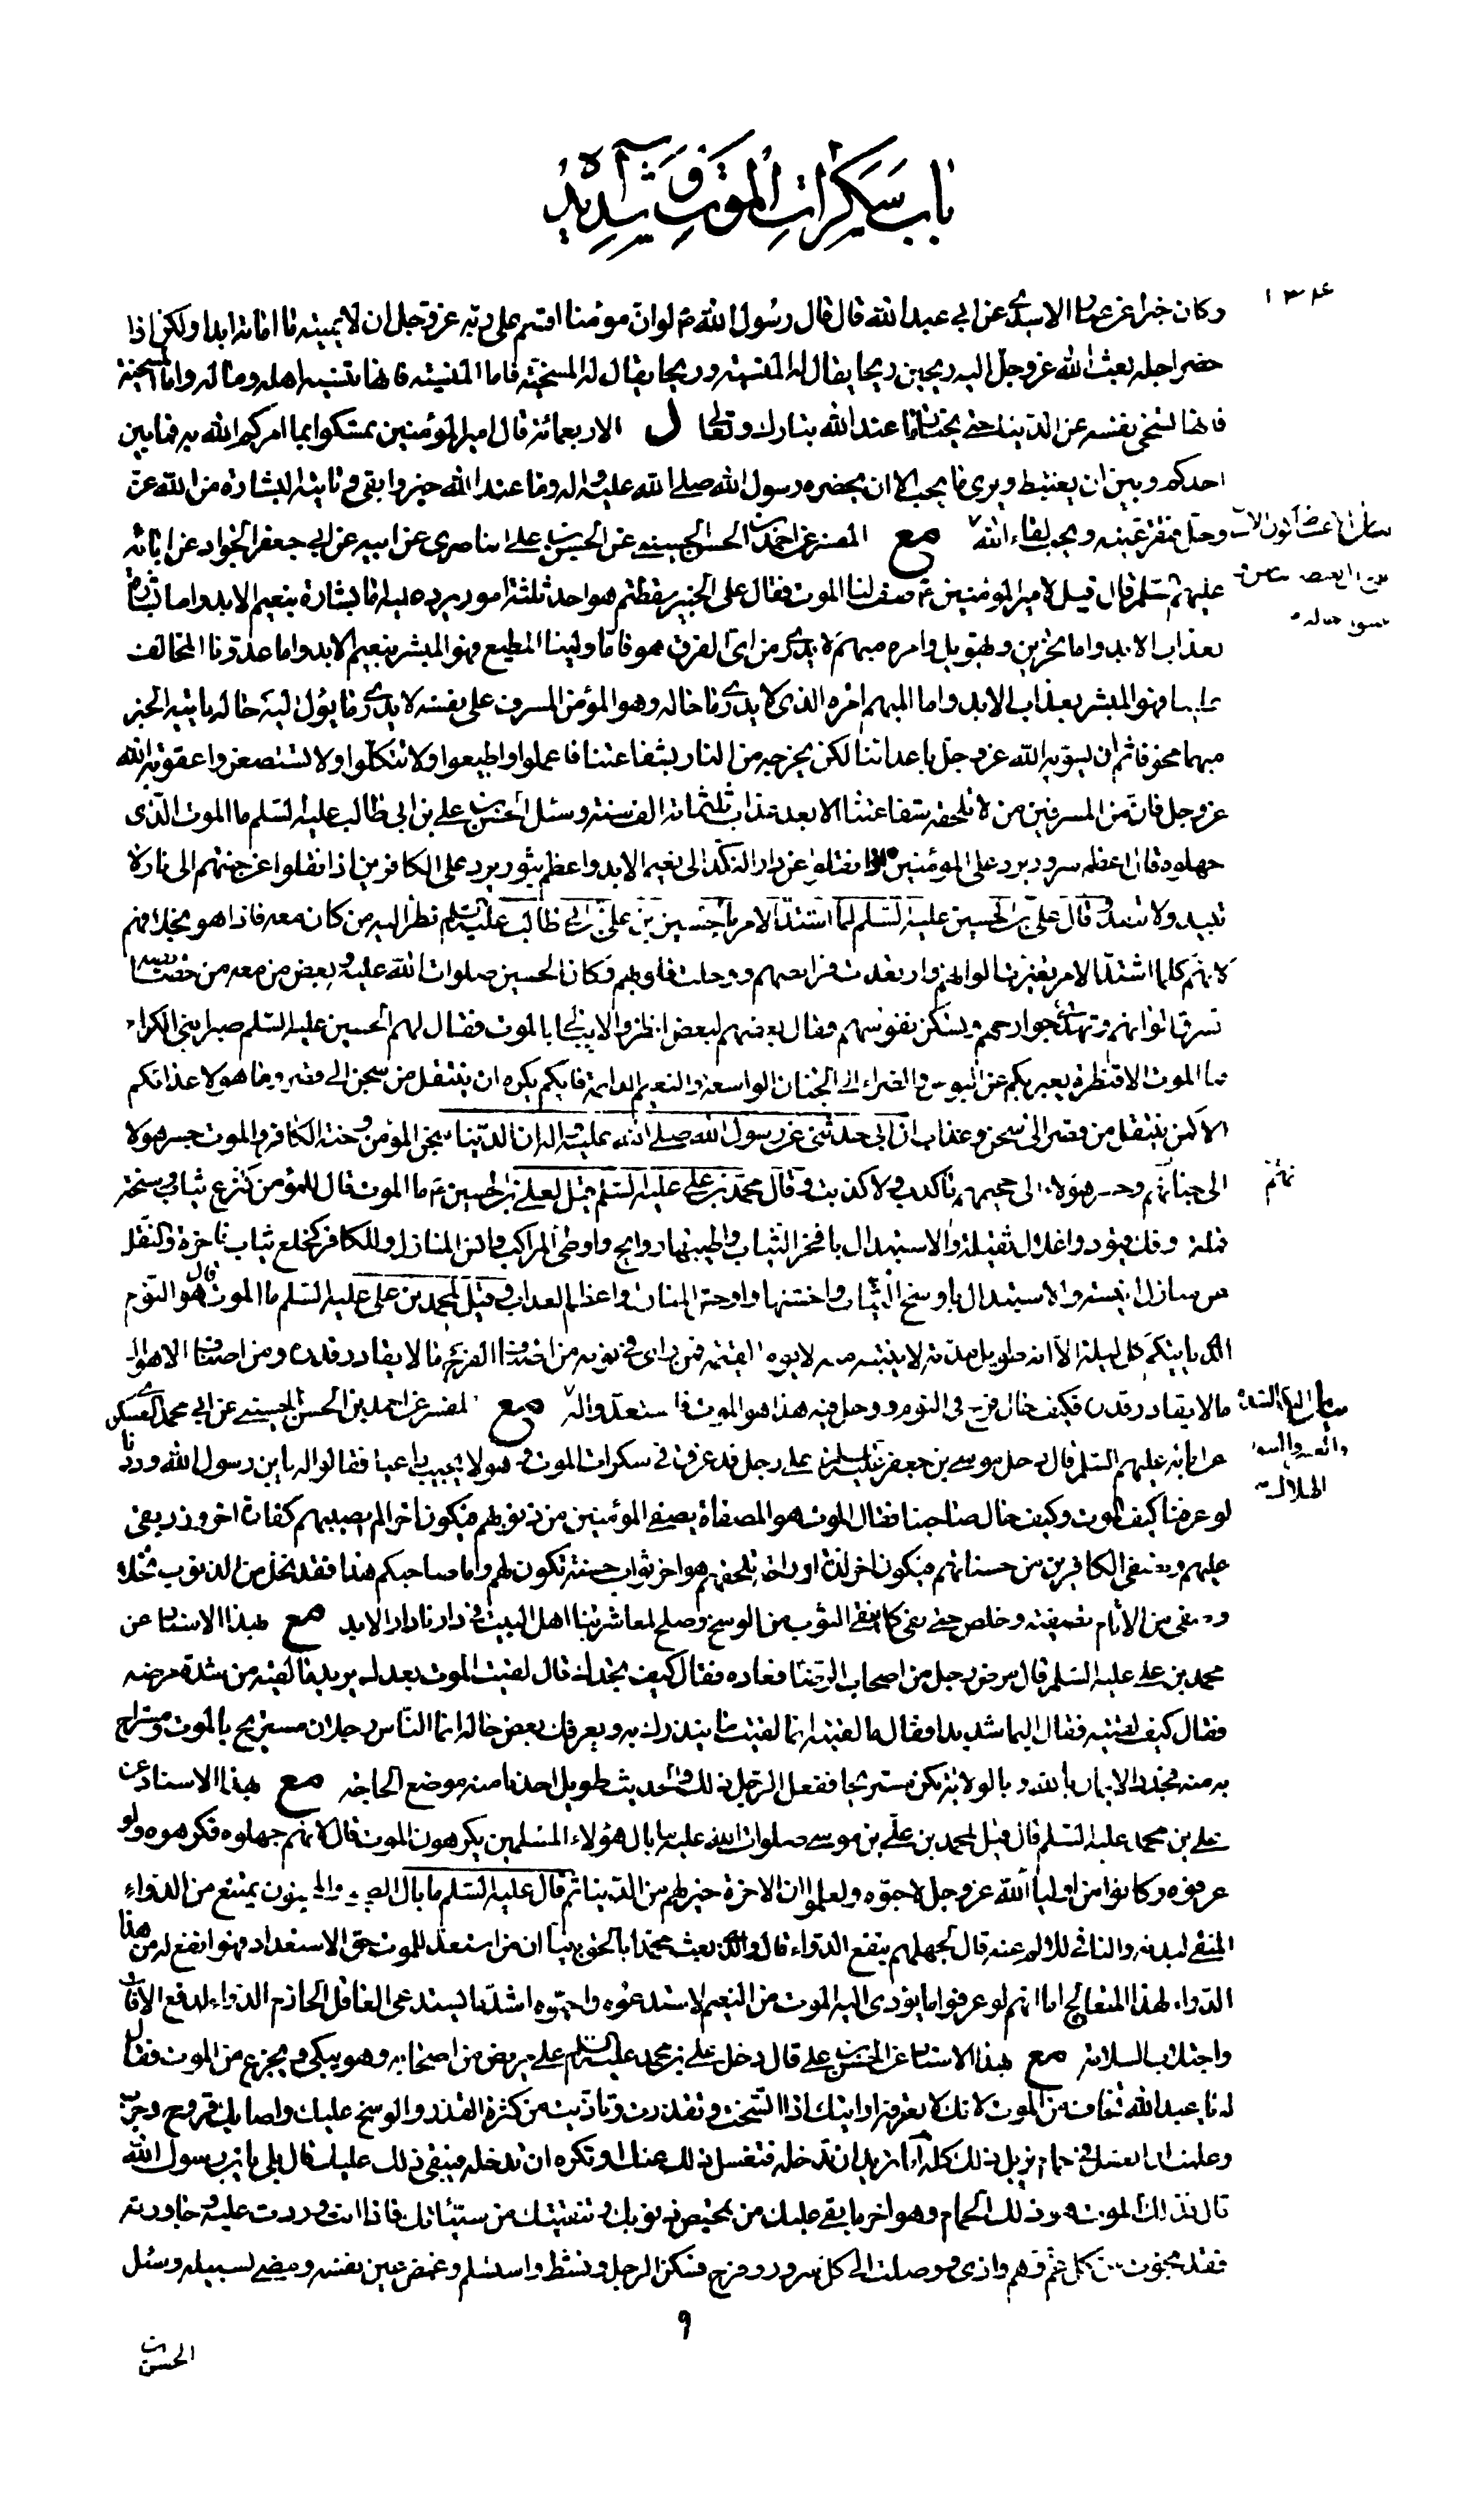 باب سكرات الموت و شدائده
وكان خيرا عن عباد الاسدي عن ابي عبد الله قال قال رسول الله ص لو ان مؤمنا اقسم على ربه عز وجل ان لا يميته ما اماته ابدا ولكن اذا
حضر اجله بعث الله عز وجل اليه ريحين ريحا يقال له المنسية وريحا يقال له المسخية فاما المنسية فانها تنسيه اهله وماله واما المسخية
فانها تسخي نفسه عن الدنيا حتى يختار ما عند الله تبارك وتعالى ل الاربعمائة قال امير المؤمنين تمسكوا بما امركم الله به فما بين
احدكم وبين ان يغتبط ويرى ما يحب الا ان يحضره رسول الله صلى الله عليه واله وما عند الله خير وابقى وتاتيه البشارة من الله عز
وجل فتقر عينه ويحب لقاء الله مع المفسر عن احمد بن الحسن الحسيني عن الحسن بن علي الناصري عن ابيه عن ابي جعفر الجواد عن ابائه
عليهم السلم قال قيل لامير المؤمنين ع صف لنا الموت فقال على الخبير سقطتم هو احد ثلثة امور يرد عليه اما بشارة بنعيم الابد واما بشارة
بعذاب الابد واما تحزين وتهويل وامره مبهم لا يدري من اي الفرق هو فاما ولينا المطيع فهو المبشر بنعيم الابد واما عدونا المخالف
علينا فهو المبشر بعذاب الابد واما المبهم امره الذي لا يدري ما حاله وهو المؤمن المسرف على نفسه لا يدري ما يؤل اليه حاله ياتيه الخبر
مبهما مخوفا ثم لن يسويه الله عز وجل باعدائنا لكن يخرجه من النار بشفاعتنا فاعملوا واطيعوا ولا تتكلوا ولا تستصغروا عقوبة الله
عز وجل فان من المسرفين من لا تلحقه شفاعتنا الا بعد عذاب ثلثمائة الف سنة وسئل الحسن بن علي بن ابي طالب عليه السلم ما الموت الذي
جهلوه قال اعظم سرور يرد على المؤمنين اذا نقلوا عن دار النكد الى نعيم الابد واعظم ثبور يرد على الكافرين اذا نقلوا عن جنتهم الى نار لا
تبيد ولا تنفد وقال علي بن الحسين عليه السلم لما اشتد الامر بالحسين بن علي بن ابي طالب عليه السلم نظر اليه من كان معه فاذا هو بخلافهم
لانهم كلما اشتد الامر تغيرت الوانهم وارتعدت فرائصهم ووجلت قلوبهم وكان الحسين صلوات الله عليه وبعض من معه من خصائصه
تشرق الوانهم وتهدئ جوارحهم وتسكن نفوسهم فقال بعضهم لبعض انظروا لا يبالي بالموت فقال لهم الحسين عليه السلم صبرا بني الكرام
فما الموت الا قنطرة يعبر بكم عن البؤس والضراء الى الجنان الواسعة والنعيم الدائمة فايكم يكره ان ينتقل من سجن الى قصر وما هو لاعدائكم
الا كمن ينتقل من قصر الى سجن وعذاب ان ابي حدثني عن رسول الله صلى الله عليه واله ان الدنيا سجن المؤمن وجنة الكافر والموت جسر هؤلاء
الى جنانهم وجسر هؤلاء الى جحيمهم ما كذبت ولا كذبت وقال محمد بن علي عليه السلم قيل لعلي بن الحسين ع ما الموت قال للمؤمن كنزع ثياب وسخة
قملة وفك قيود واغلال ثقيلة والاستبدال بافخر الثياب واطيبها روايح واوطئ المراكب وانس المنازل وللكافر كخلع ثياب فاخرة والنقل
من منازل انيسة والاستبدال باوسخ الثياب واخشنها واوحش المنازل واعظم العذاب وقيل لمحمد بن علي عليه السلم ما الموت قال هو النوم
الذي ياتيكم كل ليلة الا انه طويل مدته لا ينتبه منه الا يوم القيمة فمن راى في نومه من اصناف الفرح ما لا يقادر قدره ومن اصناف الاهوال
ما لا يقادر قدره فكيف حال فرح في النوم ووجل فيه هذا هو الموت فاستعدوا له مع المفسر عن احمد بن الحسن الحسيني عن ابي محمد العسكري
عن ابائه عليهم السلم قال دخل موسى بن جعفر عليه السلم على رجل قد غرق في سكرات الموت وهو لا يجيب داعيا فقالوا له يا بن رسول الله وددنا
لو عرفنا كيف الموت وكيف حال صاحبنا فقال الموت هو المصفاة يصفي المؤمنين من ذنوبهم فيكون اخر الم يصيبهم كفارة اخر وزر بقي
عليهم ويصفي الكافرين من حسناتهم فيكون اخر لذة او راحة تلحقهم هو اخر ثواب حسنة تكون لهم واما صاحبكم هذا فقد نخل من الذنوب نخلا
وصفي من الاثام تصفية وخلص حتى نقي كما ينقى الثوب من الوسخ وصلح لمعاشرتنا اهل البيت في دارنا دار الابد مع بهذا الاسناد عن
محمد بن علي عليه السلم قال مرض رجل من اصحاب الرضا فعاده فقال كيف تجدك قال لقيت الموت بعدك يريد ما لقيه من شدة مرضه
فقال كيف لقيته فقال اليما شديدا فقال ما لقيته انما لقيت ما ينذرك به ويعرفك بعض حاله انما الناس رجلان مستريح بالموت ومستراح
به منه فجدد الايمان بالله وبالولاية تكن مستريحا ففعل الرجل ذلك والحديث طويل اخذنا منه موضع الحاجة مع بهذا الاسناد عن
علي بن محمد عليه السلم قال قيل لمحمد بن علي بن موسى صلوات الله عليه ما بال هؤلاء المسلمين يكرهون الموت قال لانهم جهلوه فكرهوه ولو
عرفوه وكانوا من اولياء الله عز وجل لاحبوه ولعلموا ان الاخرة خير لهم من الدنيا ثم قال عليه السلم ما بال الصبي والمجنون يمتنع من الدواء
المنقي لبدنه والنافي للالم عنه قال لجهلهم بنفع الدواء قال والذي بعث محمدا بالحق نبيا ان من استعد للموت حق الاستعداد فهو انفع له من هذا
الدواء لهذا المتعالج اما انهم لو عرفوا ما يؤدي اليه الموت من النعيم لاستدعوه واحبوه اشد ما يستدعي العاقل الحازم الدواء لدفع الافات
واجتلاب السلامة مع بهذا الاسناد عن الحسن بن علي قال دخل علي بن محمد عليه السلم على مريض من اصحابه وهو يبكي ويجزع من الموت فقال
له يا عبد الله تخاف من الموت لانك لا تعرفه ارايتك اذا اتسخت وتقذرت وتاذيت من كثرة القذر والوسخ عليك واصابك قروح وجرب
وعلمت ان الغسل في حمام يزيل ذلك كله اما تريد ان تدخله فتغسل ذلك عنك او تكره ان تدخله فيبقى ذلك عليك قال بلى يا بن رسول الله
قال فذاك الموت هو ذلك الحمام وهو اخر ما بقي عليك من تمحيص ذنوبك وتنقيتك من سيئاتك فاذا انت وردت عليه وجاوزته
فقد نجوت من كل غم وهم واذى ووصلت الى كل سرور وفرح فسكن الرجل ونشط واستسلم وغمض عين نفسه ومضى لسبيله وسئل
٩
الحسن بن